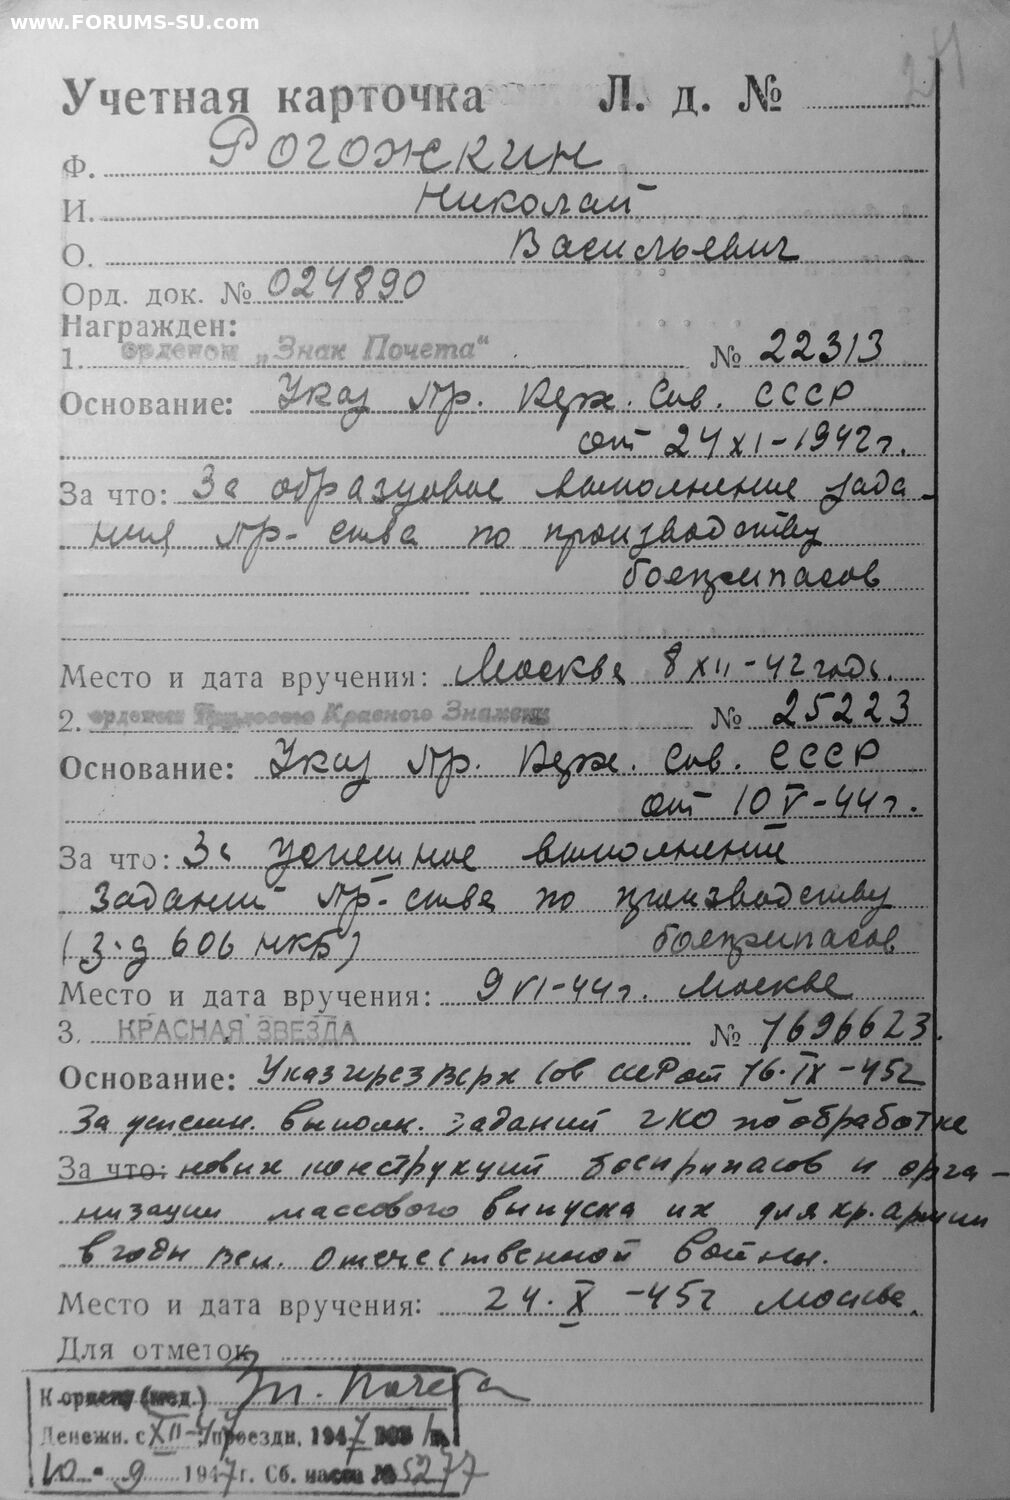 www.FORUMS-SU.com
24
Учетная карточка Л. д. №
Ф. Рогожкин
И. Николай
О. Васильевич
Орд. док. № 024890
Награжден:
1. орденом „Знак Почета“ № 22313
Основание: Указ Пр. Верх. Сов. СССР
от 24 XI-1942 г.
За что: За образцовое выполнение зада-
ния пр-ства по производству
боеприпасов
Место и дата вручения: Москва 8 XII-42 года.
2. орденом Трудового Красного Знамени № 25223
Основание: Указ Пр. Верх. Сов. СССР
от 10 V-44 г.
За что: За успешное выполнение
заданий пр-ства по производству
(З-д 606 НКБ) боеприпасов
Место и дата вручения: 9 VI-44 г. Москва
3. КРАСНАЯ ЗВЕЗДА № 1696623.
Основание: Указ През Верх Сов СССР от 16.IX-45г
За успешн. выполн. заданий ГКО по обработке
За что: новых конструкций боеприпасов и орга-
низации массового выпуска их для кр. армии
в годы Вел. Отечественной войны.
Место и дата вручения: 24.X-45г Москва.
Для отметок
К ордену (мед.) Зн. Почета
Денежн. с XII-47 проездн. 1947
10-9 1947 г. Сб. № 5277